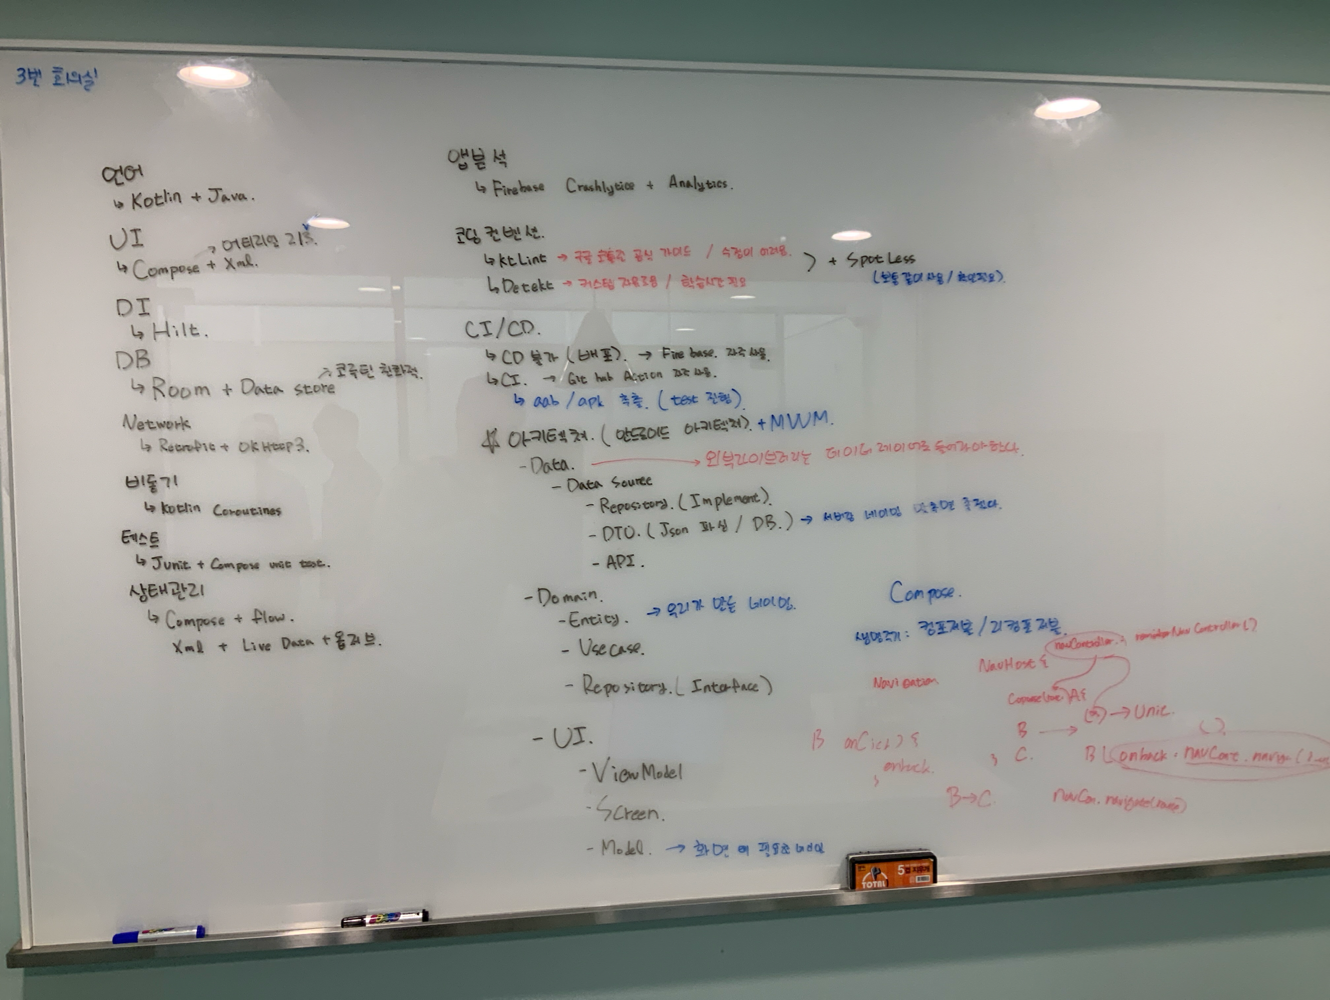 3번 회의실
언어
↳ Kotlin + Java.
UI
→ 머티리얼 디자
↳ Compose + Xml.
DI
↳ Hilt.
DB
↗ 코루틴 친화적.
↳ Room + Data store
Network
↳ Retrofit + OKHttp3.
비동기
↳ Kotlin Coroutines
테스트
↳ Junit + Compose unit test.
상태관리
↳ Compose + flow.
Xml + Live Data + 옵저브.
앱분석
↳ Firebase Crashlytics + Analytics.
코딩 컨벤션.
↳ KtLint → 구글 코틀린 공식 가이드 / 수정이 어려움.
↳ Detekt → 커스텀 자유로움 / 학습시간 필요
+ SpotLess
(보통 같이 사용 / 확인필요)
CI/CD.
↳ CD 불가 (배포). → Firebase. 자주 사용.
↳ CI. → Git hub Action 자주 사용.
↳ aab / apk 추출. (test 진행)
☆ 아키텍처. (안드로이드 아키텍처). + MVVM.
- Data. → 외부라이브러리는 데이터 레이어로 들어가야한다.
- Data Source
- Repository. (Implement).
- DTO. (Json 파싱 / DB.) → 서버랑 네이밍
- API.
- Domain.
- Entity. → 우리가 만든 네이밍.
- Usecase.
- Repository. (Interface)
- UI.
- ViewModel
- Screen.
- Model. → 화면에 필요한 네이밍
Compose.
생명주기: 컴포저블 / 리컴포저블
navController = rememberNavController()
NavHost {
Navigation
A {
→ Unit.
B →
C.
B onClick() {
onback.
}
B (onback. navCont. navigate(
B → C.
navCon. navigate(
TOTAL